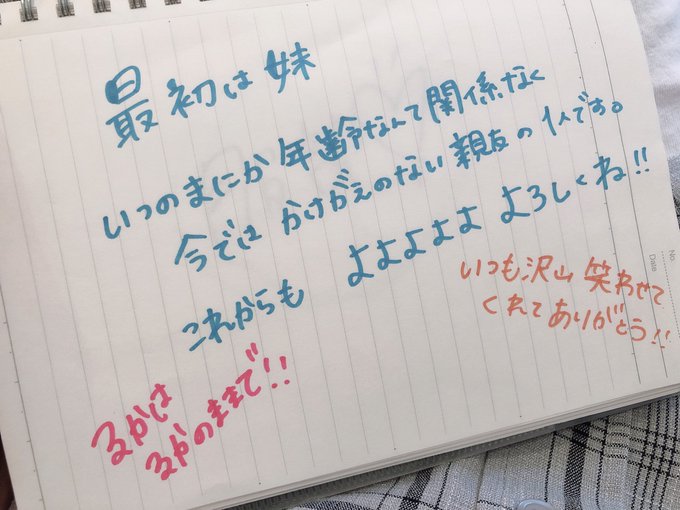 最初は妹
いつのまにか年齢なんて関係なく
今ではかけがえのない親友の1人です。
これからも よよよよよ よろしくね!!
いつも沢山笑わせて
くれてありがとう!!
るかは
るかのままで!!
No.
Date